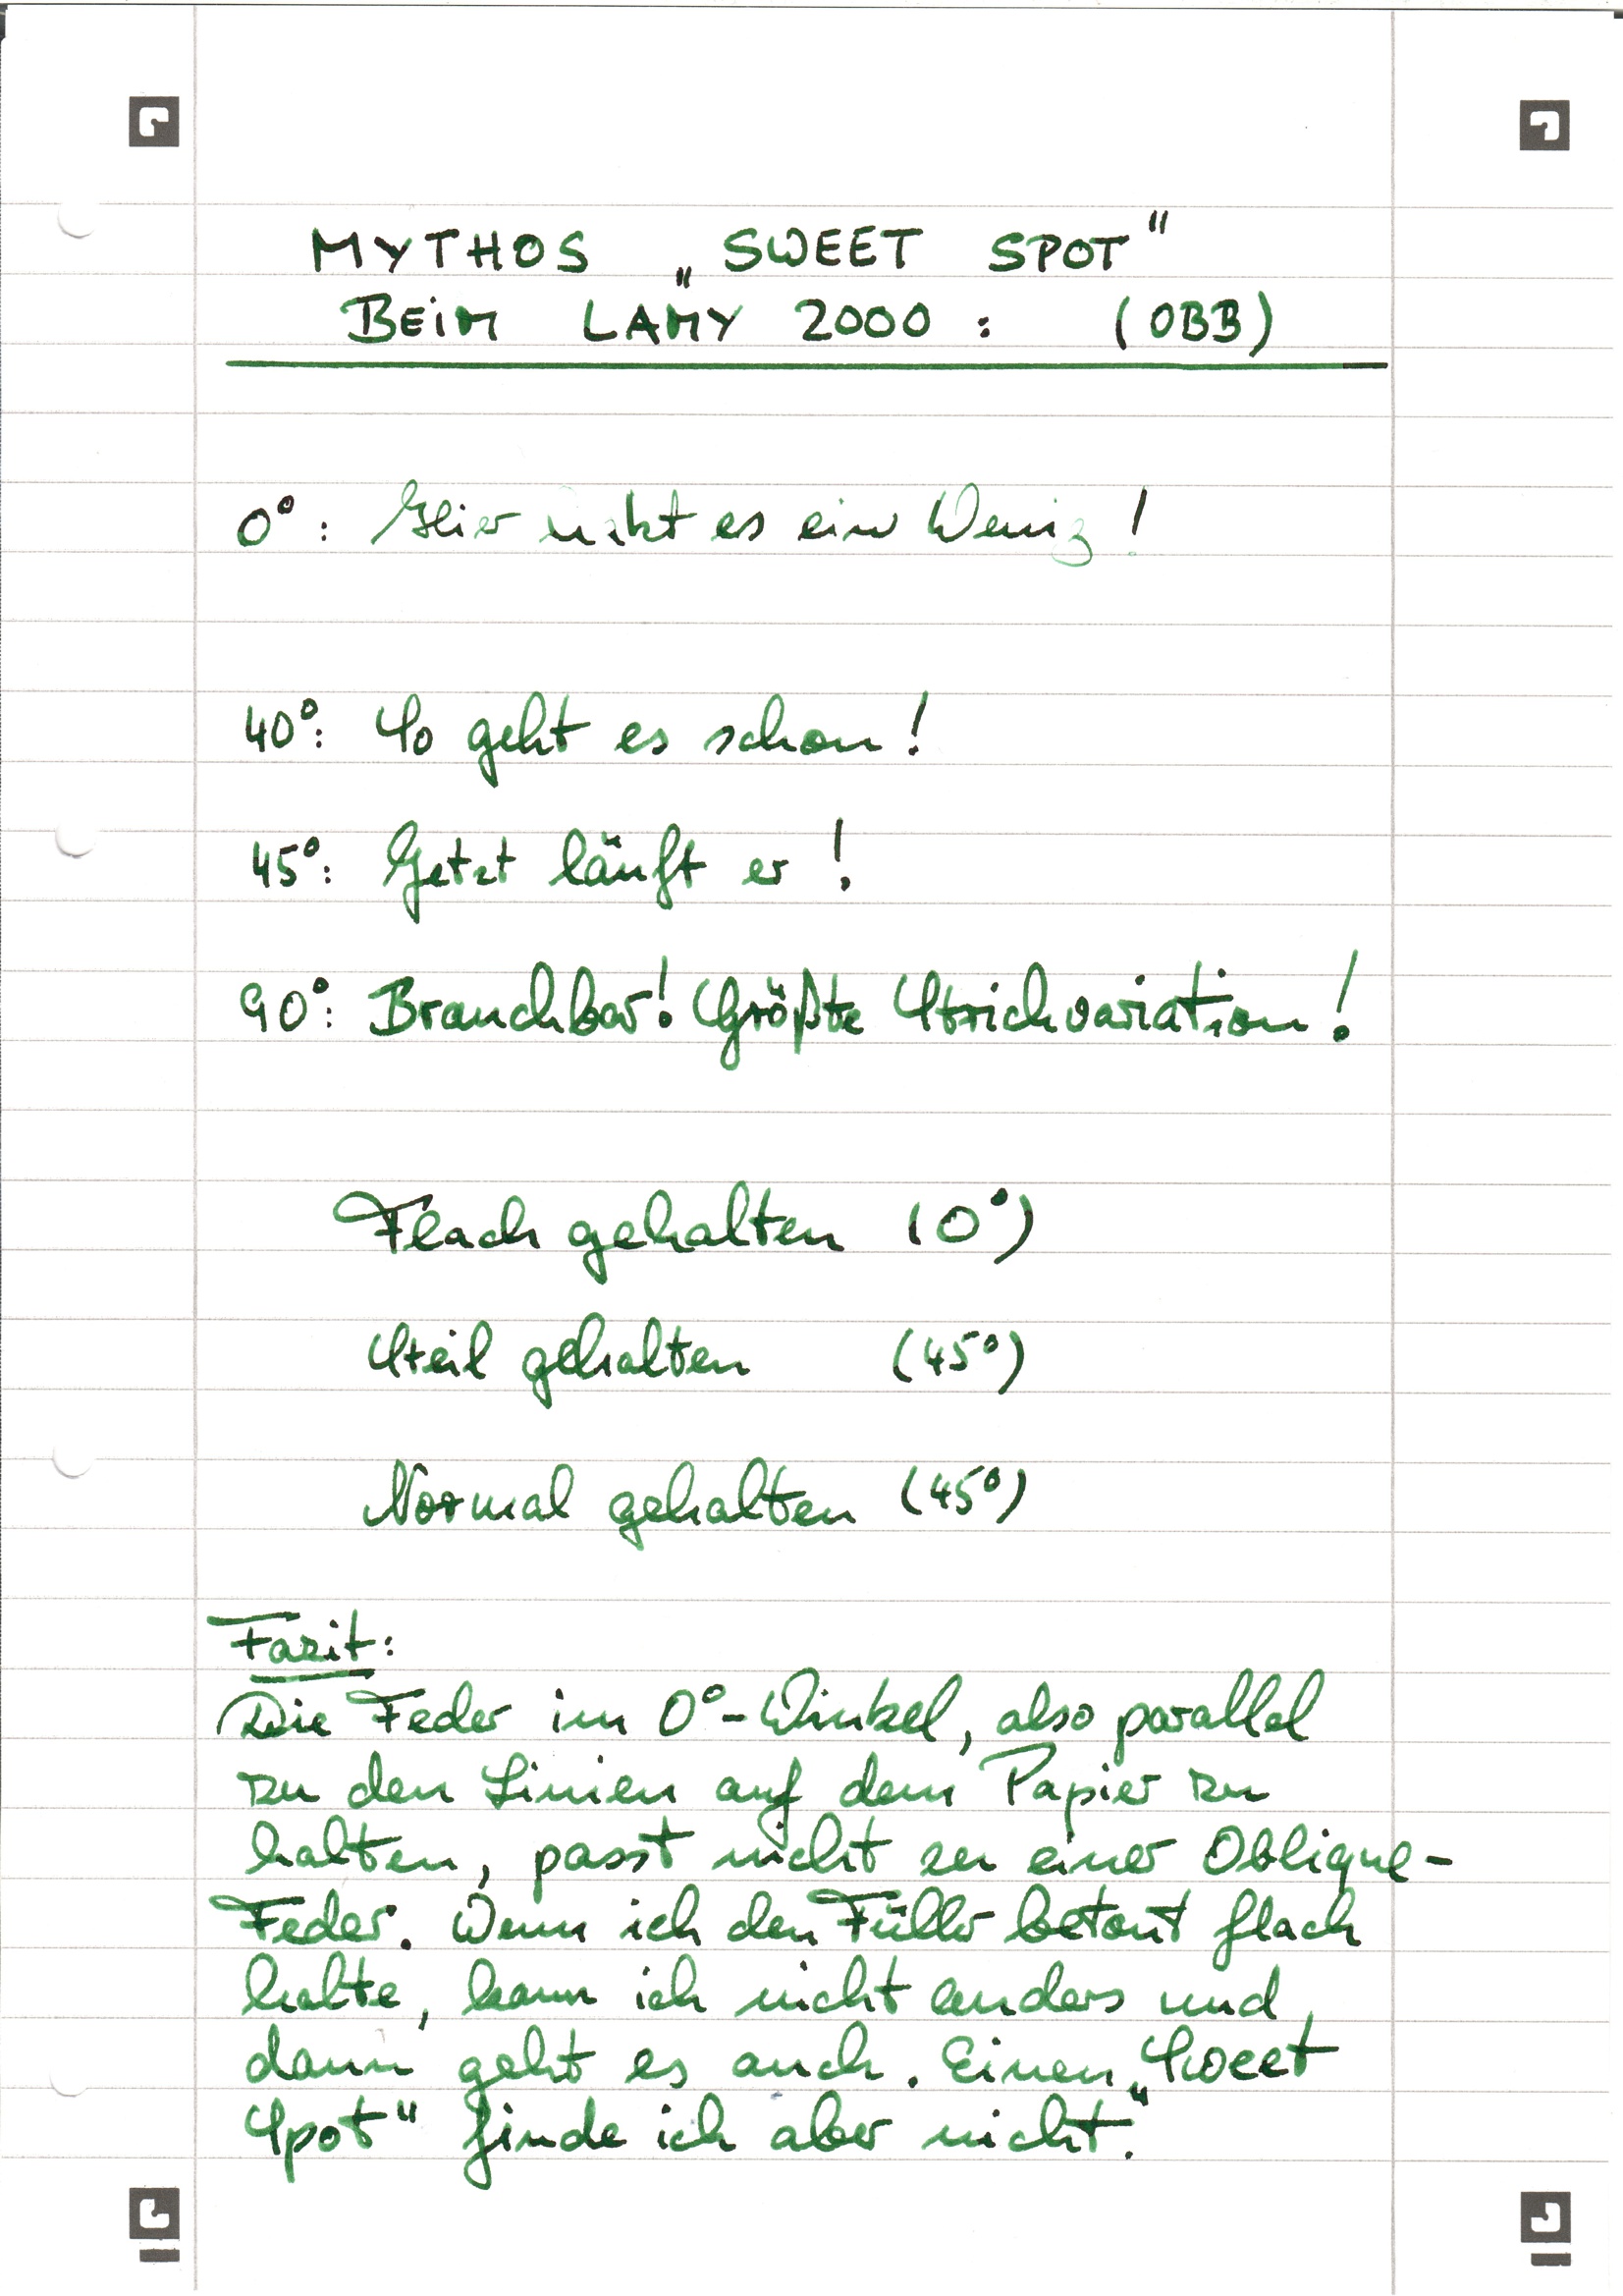 MYTHOS „SWEET SPOT"
BEIM LAMY 2000: (OBB)
0°: Hier es ein Wenig!
40°: So geht es schon!
45°: Jetzt läuft er!
90°: Brauchbar! Größte Strichvariation!
Flach gehalten (0°)
Steil gehalten (45°)
Normal gehalten (45°)
Fazit:
Die Feder im 0°-Winkel, also parallel
zu den Linien auf dem Papier zu
halten, passt nicht zu einer Oblique-
Feder. Wenn ich den Füller betont flach
halte, kann ich nicht anders und
dann geht es auch. Einen „Sweet
Spot" finde ich aber nicht."